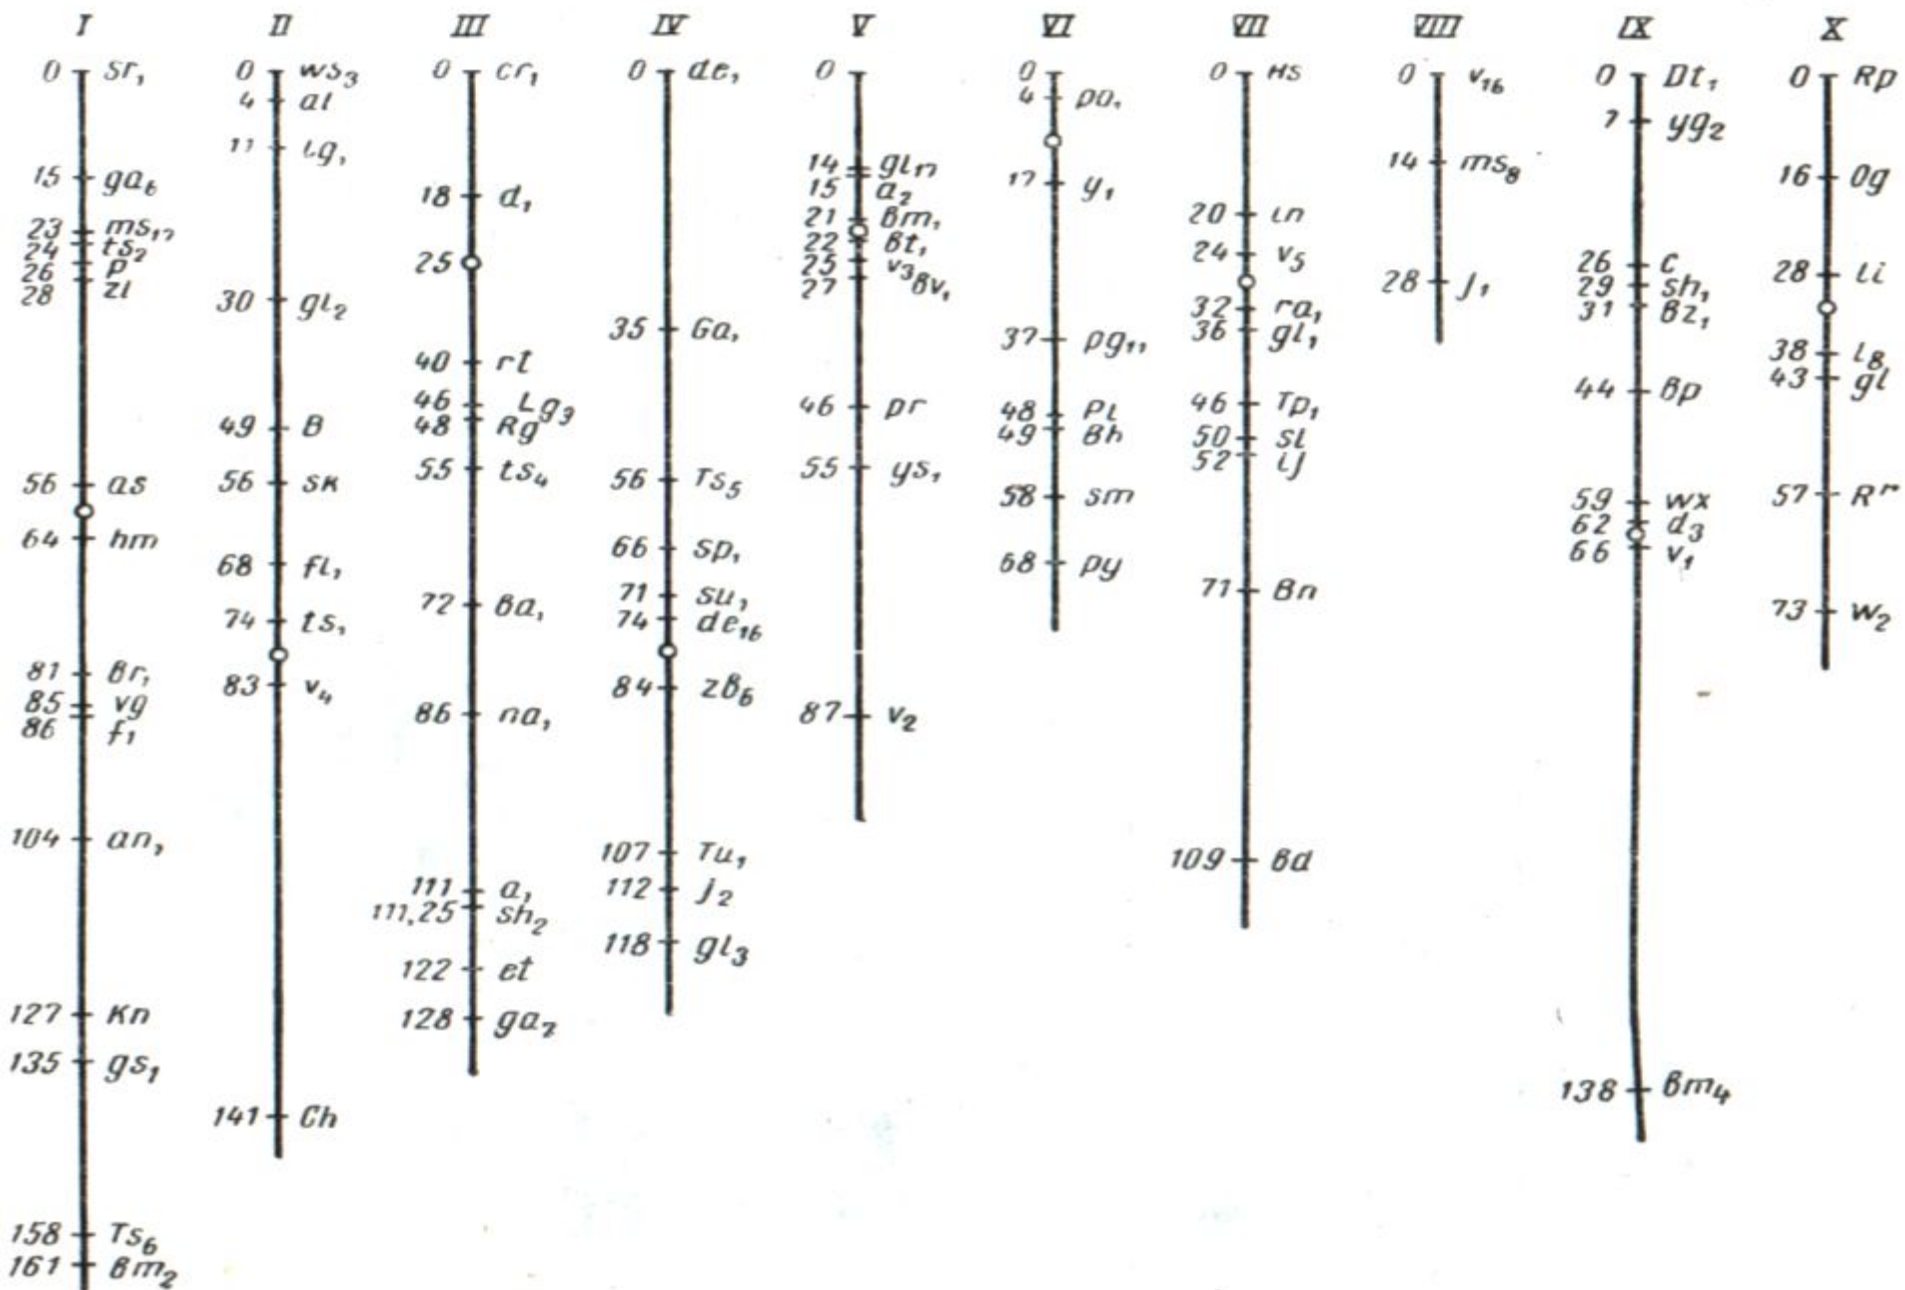 I II III IV V VI VII VIII IX X
0 sr₁
15 ga₆
23 ms₁₇
24 ts₂
26 P
28 zl
56 as
64 hm
81 br₁
85 vg
86 f₁
104 an₁
127 Kn
135 gs₁
158 Ts₆
161 bm₂
0 ws₃
4 al
11 lg₁
30 gl₂
49 B
56 sk
68 fl₁
74 ts₁
83 v₄
141 Ch
0 cr₁
18 d₁
25
40 rt
46 Lg₃
48 Rg
55 ts₄
72 ba₁
86 na₁
111 a₁
111,25 sh₂
122 et
128 ga₇
0 de₁
35 Ga₁
56 Ts₅
66 sp₁
71 su₁
74 de₁₆
84 zb₆
107 Tu₁
112 j₂
118 gl₃
0
14 gl₁₇
15 a₂
21 bm₁
22 bt₁
25 v₃
27 bv₁
46 pr
55 ys₁
87 v₂
0
4 po₁
17 y₁
37 pg₁₁
48 Pl
49 Bh
58 sm
68 py
0 Hs
20 in
24 v₅
32 ra₁
36 gl₁
46 Tp₁
50 sl
52 ij
71 Bn
109 bd
0 v₁₆
14 ms₈
28 j₁
0 Dt₁
7 yg₂
26 c
29 sh₁
31 bz₁
44 bp
59 wx
62 d₃
66 v₁
138 bm₄
0 Rp
16 Og
28 li
38 l₈
43 gl
57 Rʳ
73 w₂